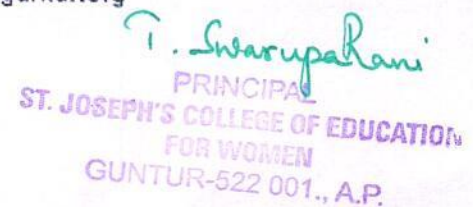 T. SwarupaRani
PRINCIPAL
ST. JOSEPH'S COLLEGE OF EDUCATION
FOR WOMEN
GUNTUR-522 001., A.P.